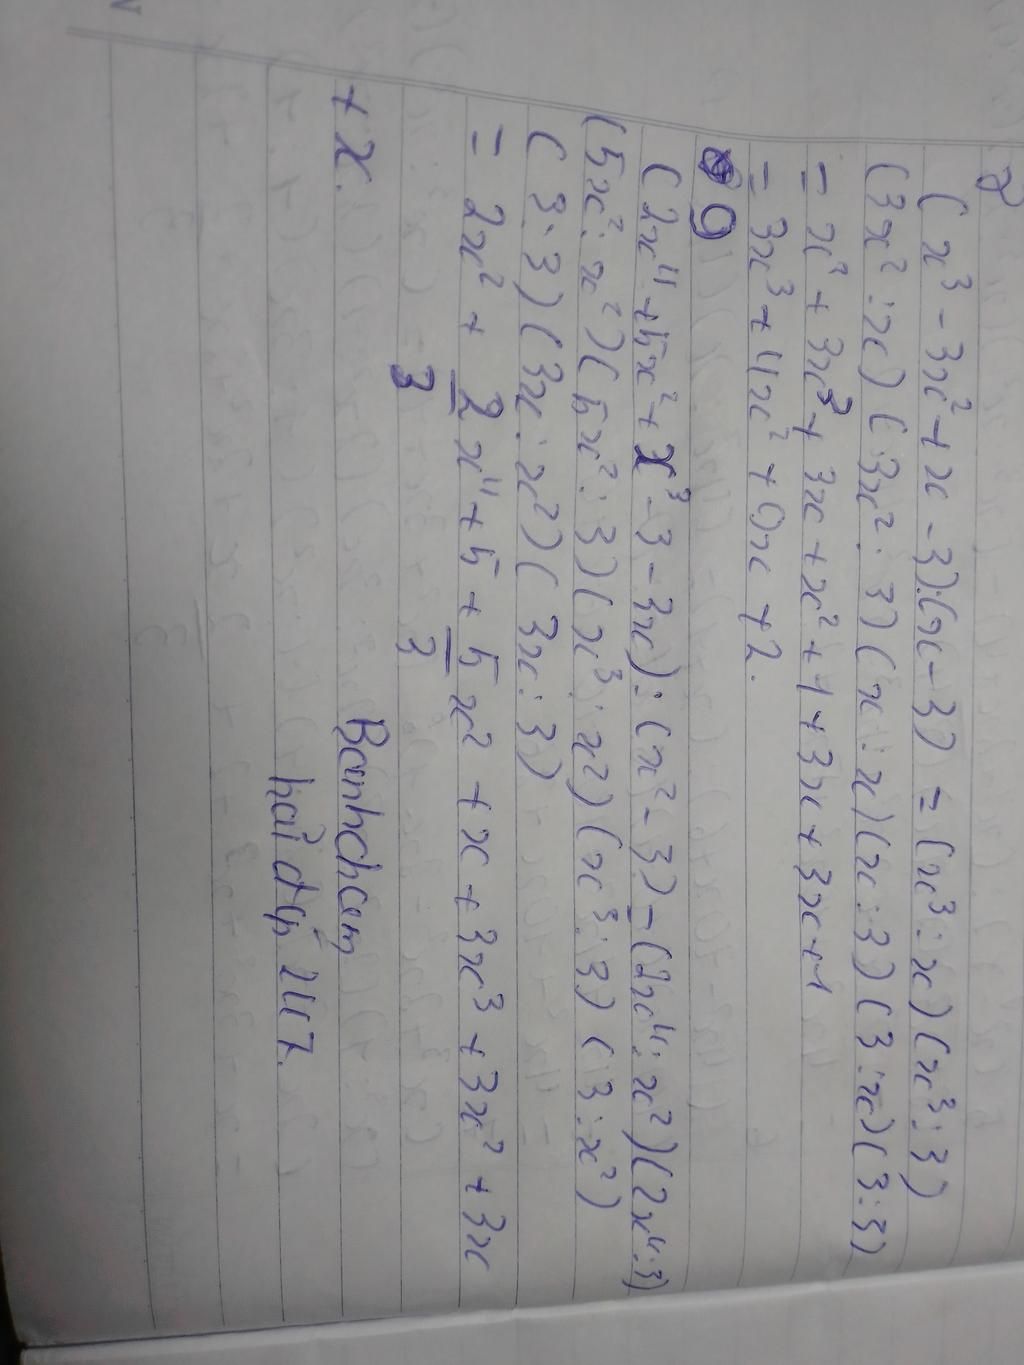 ( x³ - 3x² + x - 3):(x - 3) = (x³ : x) (x³ : 3)
(3x² : x) ( 3x² : 3) (x : x)(x : 3) (3 : x) (3 : 3)
= x² + 3x³ + 3x + x² + 1 + 3x + 3x + 1
= 3x³ + 4x² + 9x + 2.
9
( 2x⁴ + 5x² + x³ - 3 - 3x) : (x² - 3) = (2x⁴ : x²)(2x⁴ : 3)
(5x² : x²)(5x² : 3)(x³ : x²)(x³ : 3) (3 : x²)
( 3 : 3) (3x : x²)( 3x : 3)
= 2x² + 2/3 x⁴ + 5 + 5/3 x² + x + 3x³ + 3x² + 3x
+ x.